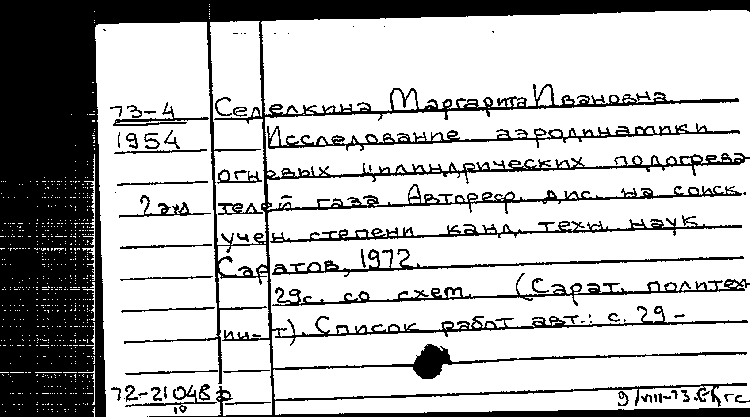 73-4 Седелкина, Маргарита Ивановна
1954 Исследование аэродинамики
огневых цилиндрических подогрева
2 экз телей газа. Автореф. дис. на соиск.
учен. степени канд. техн. наук.
Саратов, 1972.
29с. со схем. (Сарат. политехн
ин-т). Список работ авт.: с. 29-
72-21048
10
9/VIII-73.